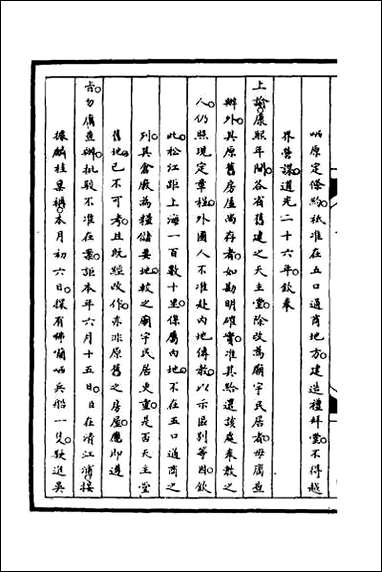 哂原定條約祇准在五口通商地方建造禮拜堂不得越
界營謀道光二十六年欽奉
上諭康熙年間各省舊建之天主堂除改為廟宇民居者毋庸查
辦外其原舊房屋尚存者如勘明確實准其給還該處奉教之
人仍照現定章程外國人不准赴內地傳教以示區別等因欽
此松江距上海一百數十里係屬內地不在五口通商之
列其倉廒為糧儲要地較之廟宇民居尤重是否天主堂
舊地已不可考且既經改作亦非原舊之房屋應即遵
旨勿庸查辦批駁不准在案詎本年六月十五日日在清江浦接
據麟桂吳稱本月初六日探有咈囒哂兵船一隻駛進吳